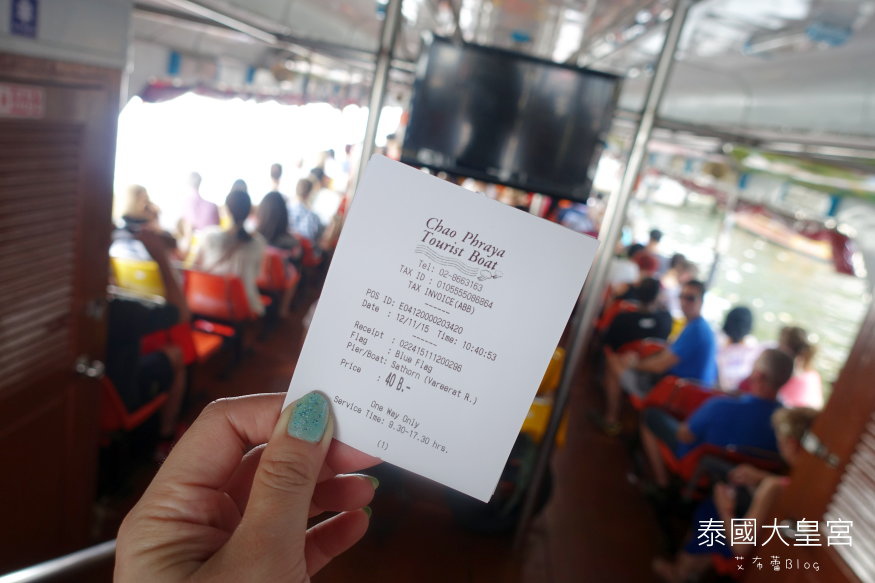 Chao Phraya
Tourist Boat
Tel: 02-8663163
TAX ID : 0105555086864
TAX INVOICE(ABB)
------
POS ID: E04120000203420
Date : 12/11/15 Time: 10:40:53
------
Receipt : 022415111200296
Flag : Blue Flag
Pier/Boat: Sathorn (Vareerat R.)
Price : 40 B.-
One Way Only
Service Time: 9.30-17.30 hrs.
(1)
泰國大皇宮
艾布蕾Blog